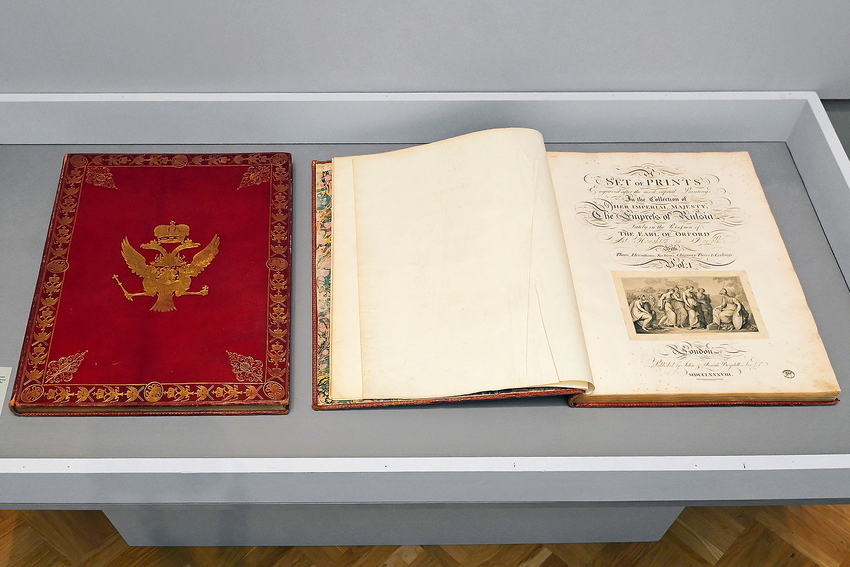 A
SET OF PRINTS
Engraved after the most capital Paintings
In the Collection of
HER IMPERIAL MAJESTY,
The Empress of Russia
Lately in the Possession of
THE EARL OF ORFORD
At Houghton
Plans, Elevations, Sections, Chimney Pieces & Ceilings
Vol. I
London
Published by John & Josiah Boydell
MDCCLXXXVIII.